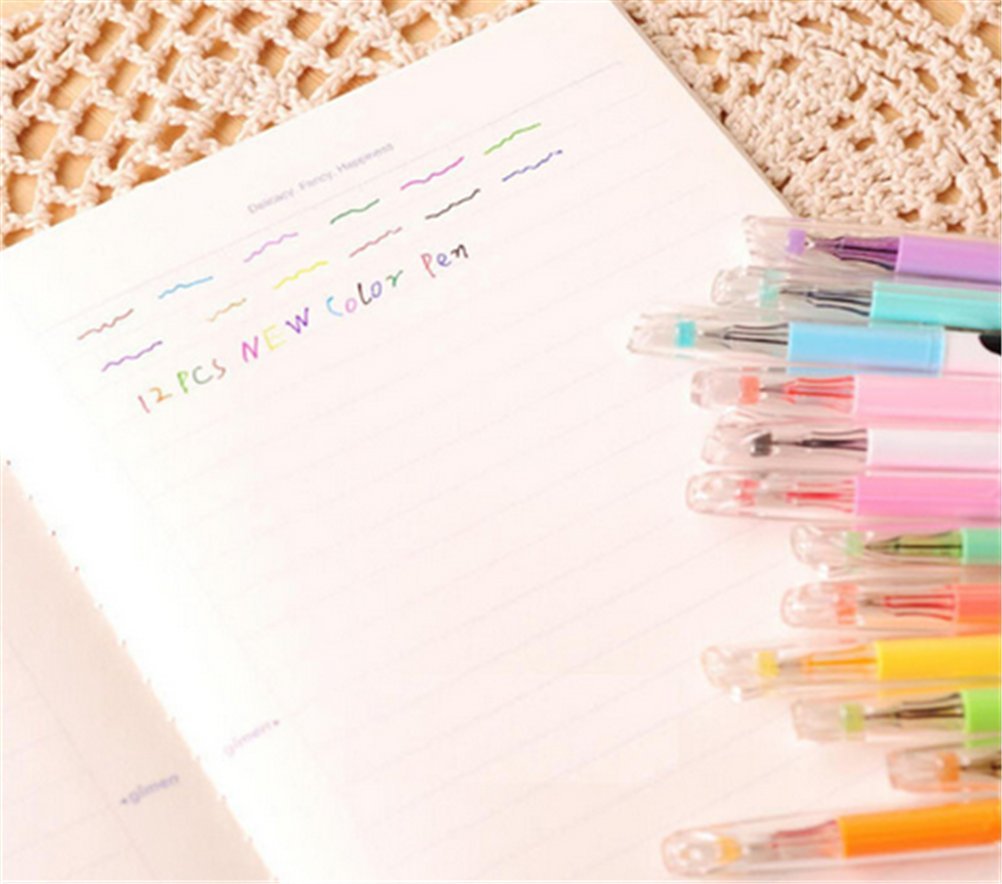 Delicacy Fancy Happiness
12 PCS NEW Color Pen
glimen
glimen